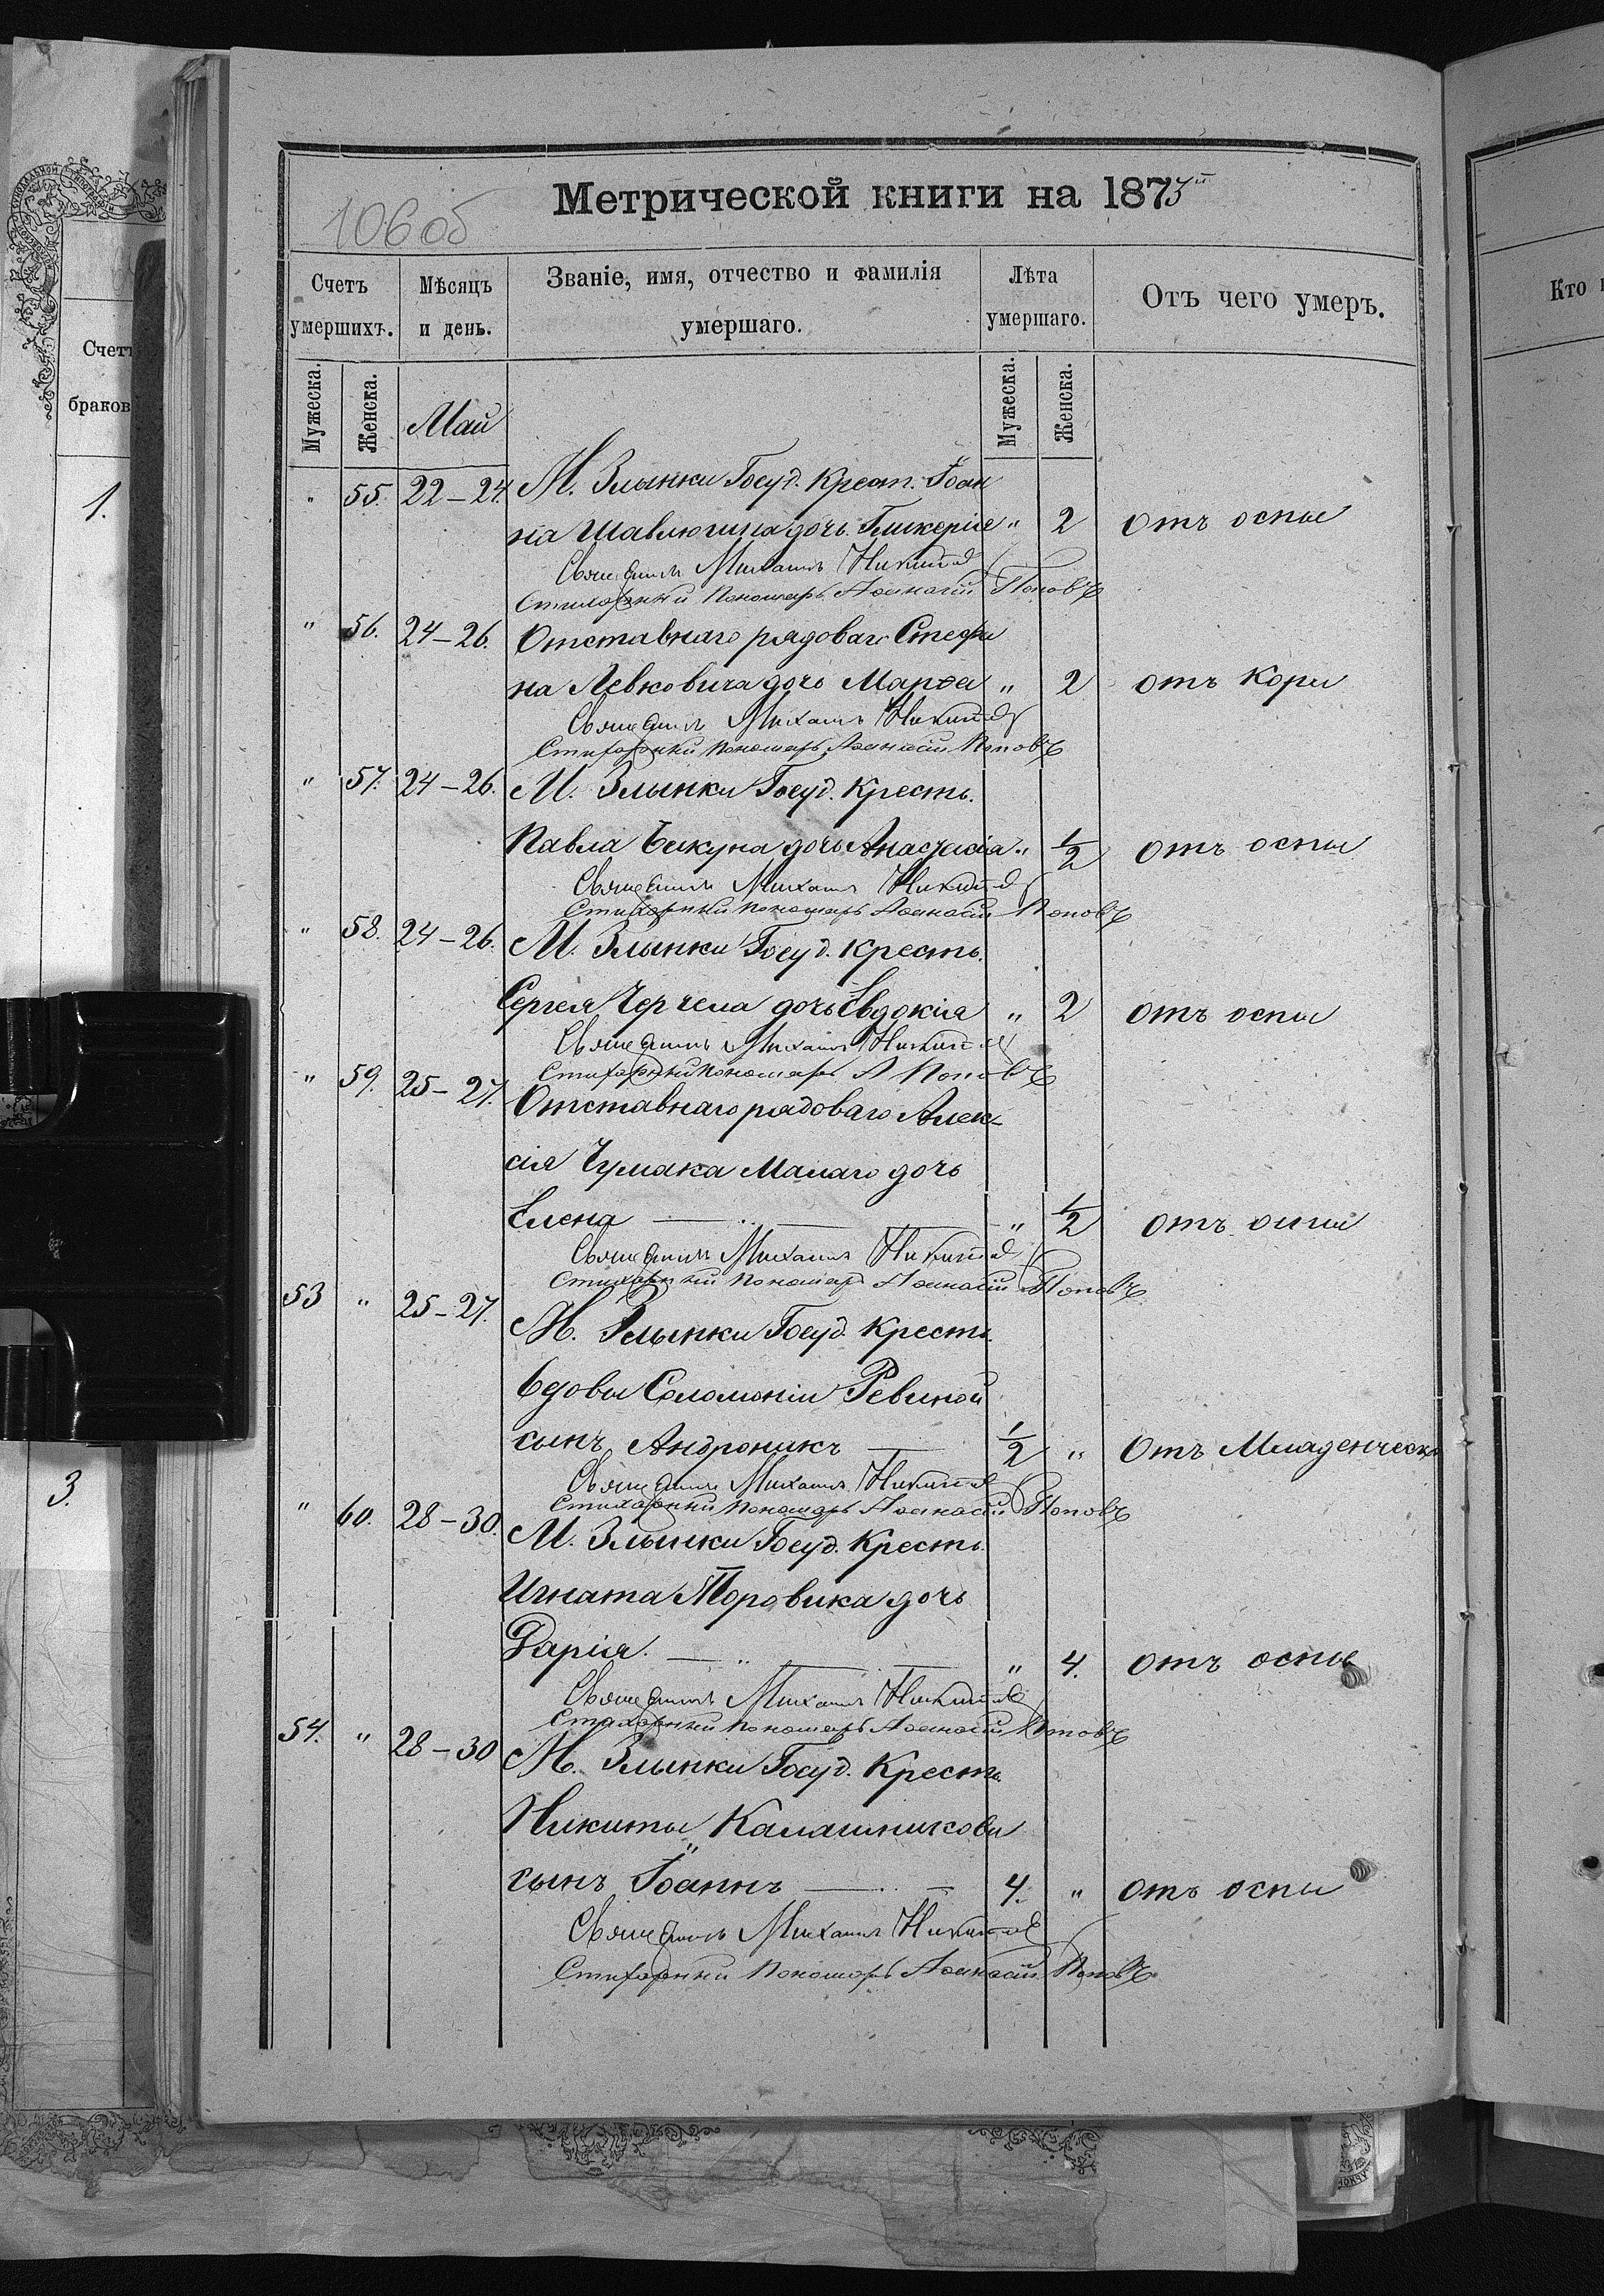 Метрической книги на 1873й
106об
Счетъ умершихъ.
Мѣсяцъ и день.
Званіе, имя, отчество и фамилія умершаго.
Лѣта умершаго.
Отъ чего умеръ.
Мужеска. Женска. Май Мужеска. Женска.
" 55. 22–24. М. Злынки Госуд. Крест. Іоан
на Шавлюгина дочь Гликерія " 2 отъ оспы
Михаилъ
Стихарный Пономарь Аѳанасій Поповъ
" 56. 24–26. Отставнаго рядоваго Стефа
на Левковича дочь Марѳа " 2 отъ Кори
Михаилъ
Стихарный Пономарь Аѳанасій Поповъ
" 57. 24–26. М. Злынки Госуд. Кресть.
Павла Бакуна дочь Анастасія " 1/2 отъ оспы
Михаилъ
Стихарный Пономарь Аѳанасій Поповъ
" 58. 24–26. М. Злынки Госуд. Кресть.
Сергея Черчела дочь Евдокія " 2 отъ оспы
Михаилъ
Стихарный Пономарь А Поповъ
" 59. 25–27. Отставнаго рядоваго Алек-
сія Чумака Малаго дочь
Елена " 1/2 отъ оспы
Михаилъ
Стихарный Пономарь Аѳанасій Поповъ
53 " 25–27. М. Злынки Госуд. Кресть.
вдовы Соломоніи Ревиной
сынъ Андроникъ 1/2 " Отъ Младенческо
Михаилъ
Стихарный Пономарь Аѳанасій Поповъ
" 60. 28–30. М. Злынки Госуд. Кресть.
Игната Торовика дочь
Дарія. " 4. отъ оспы
Михаилъ
Стихарный Пономарь Аѳанасій Поповъ
54. " 28–30 М. Злынки Госуд. Кресть.
Никиты Калашникова
сынъ Іоаннъ 4. " отъ оспы
Михаилъ
Стихарный Пономарь Аѳанасій Поповъ
Счетъ
браков
1.
3.
Кто